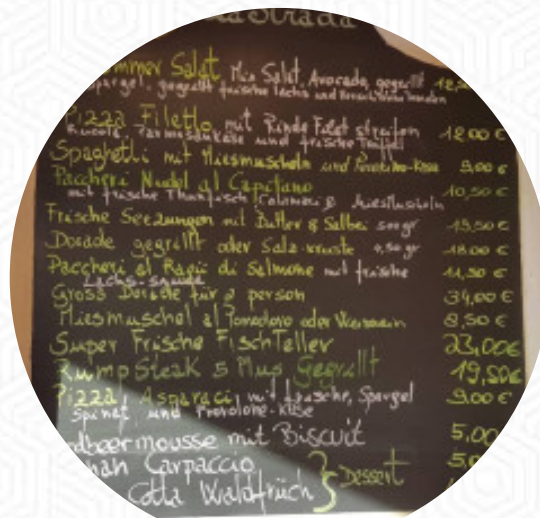 Strada
Salat, Mix Salat, Avocado, gegrillt
gegrillt frische Lachs und
Pizza Filetto mit Rinds Filet streifen 12.00 €
Rucola, Parmesankäse und frische
Spaghetti mit Miesmuscheln und 9,00 €
Paccheri Nudel al Capitano 10,50 €
mit frische Thunfisch, Calamari & Miesmuscheln
Frische Seezungen mit Butter & Salbei 500gr
Dorade gegrillt oder Salz-kruste 18.00 €
Paccheri al Ragù di Salmone mit frische
Lachs-
Gross Dorade für 2 person 34,00 €
Miesmuschel al Pomodoro oder Weisswein 8,50 €
Super Frische FischTeller 23,00€
RumpSteak 5 Mus Gegrillt 19,50€
Pizza Asparaci, mit frische, Spargel 9.00 €
Spinat und Provolone-Käse
mousse mit Biscuit 5.00
Carpaccio
Cotta Waldfrüch Dessert